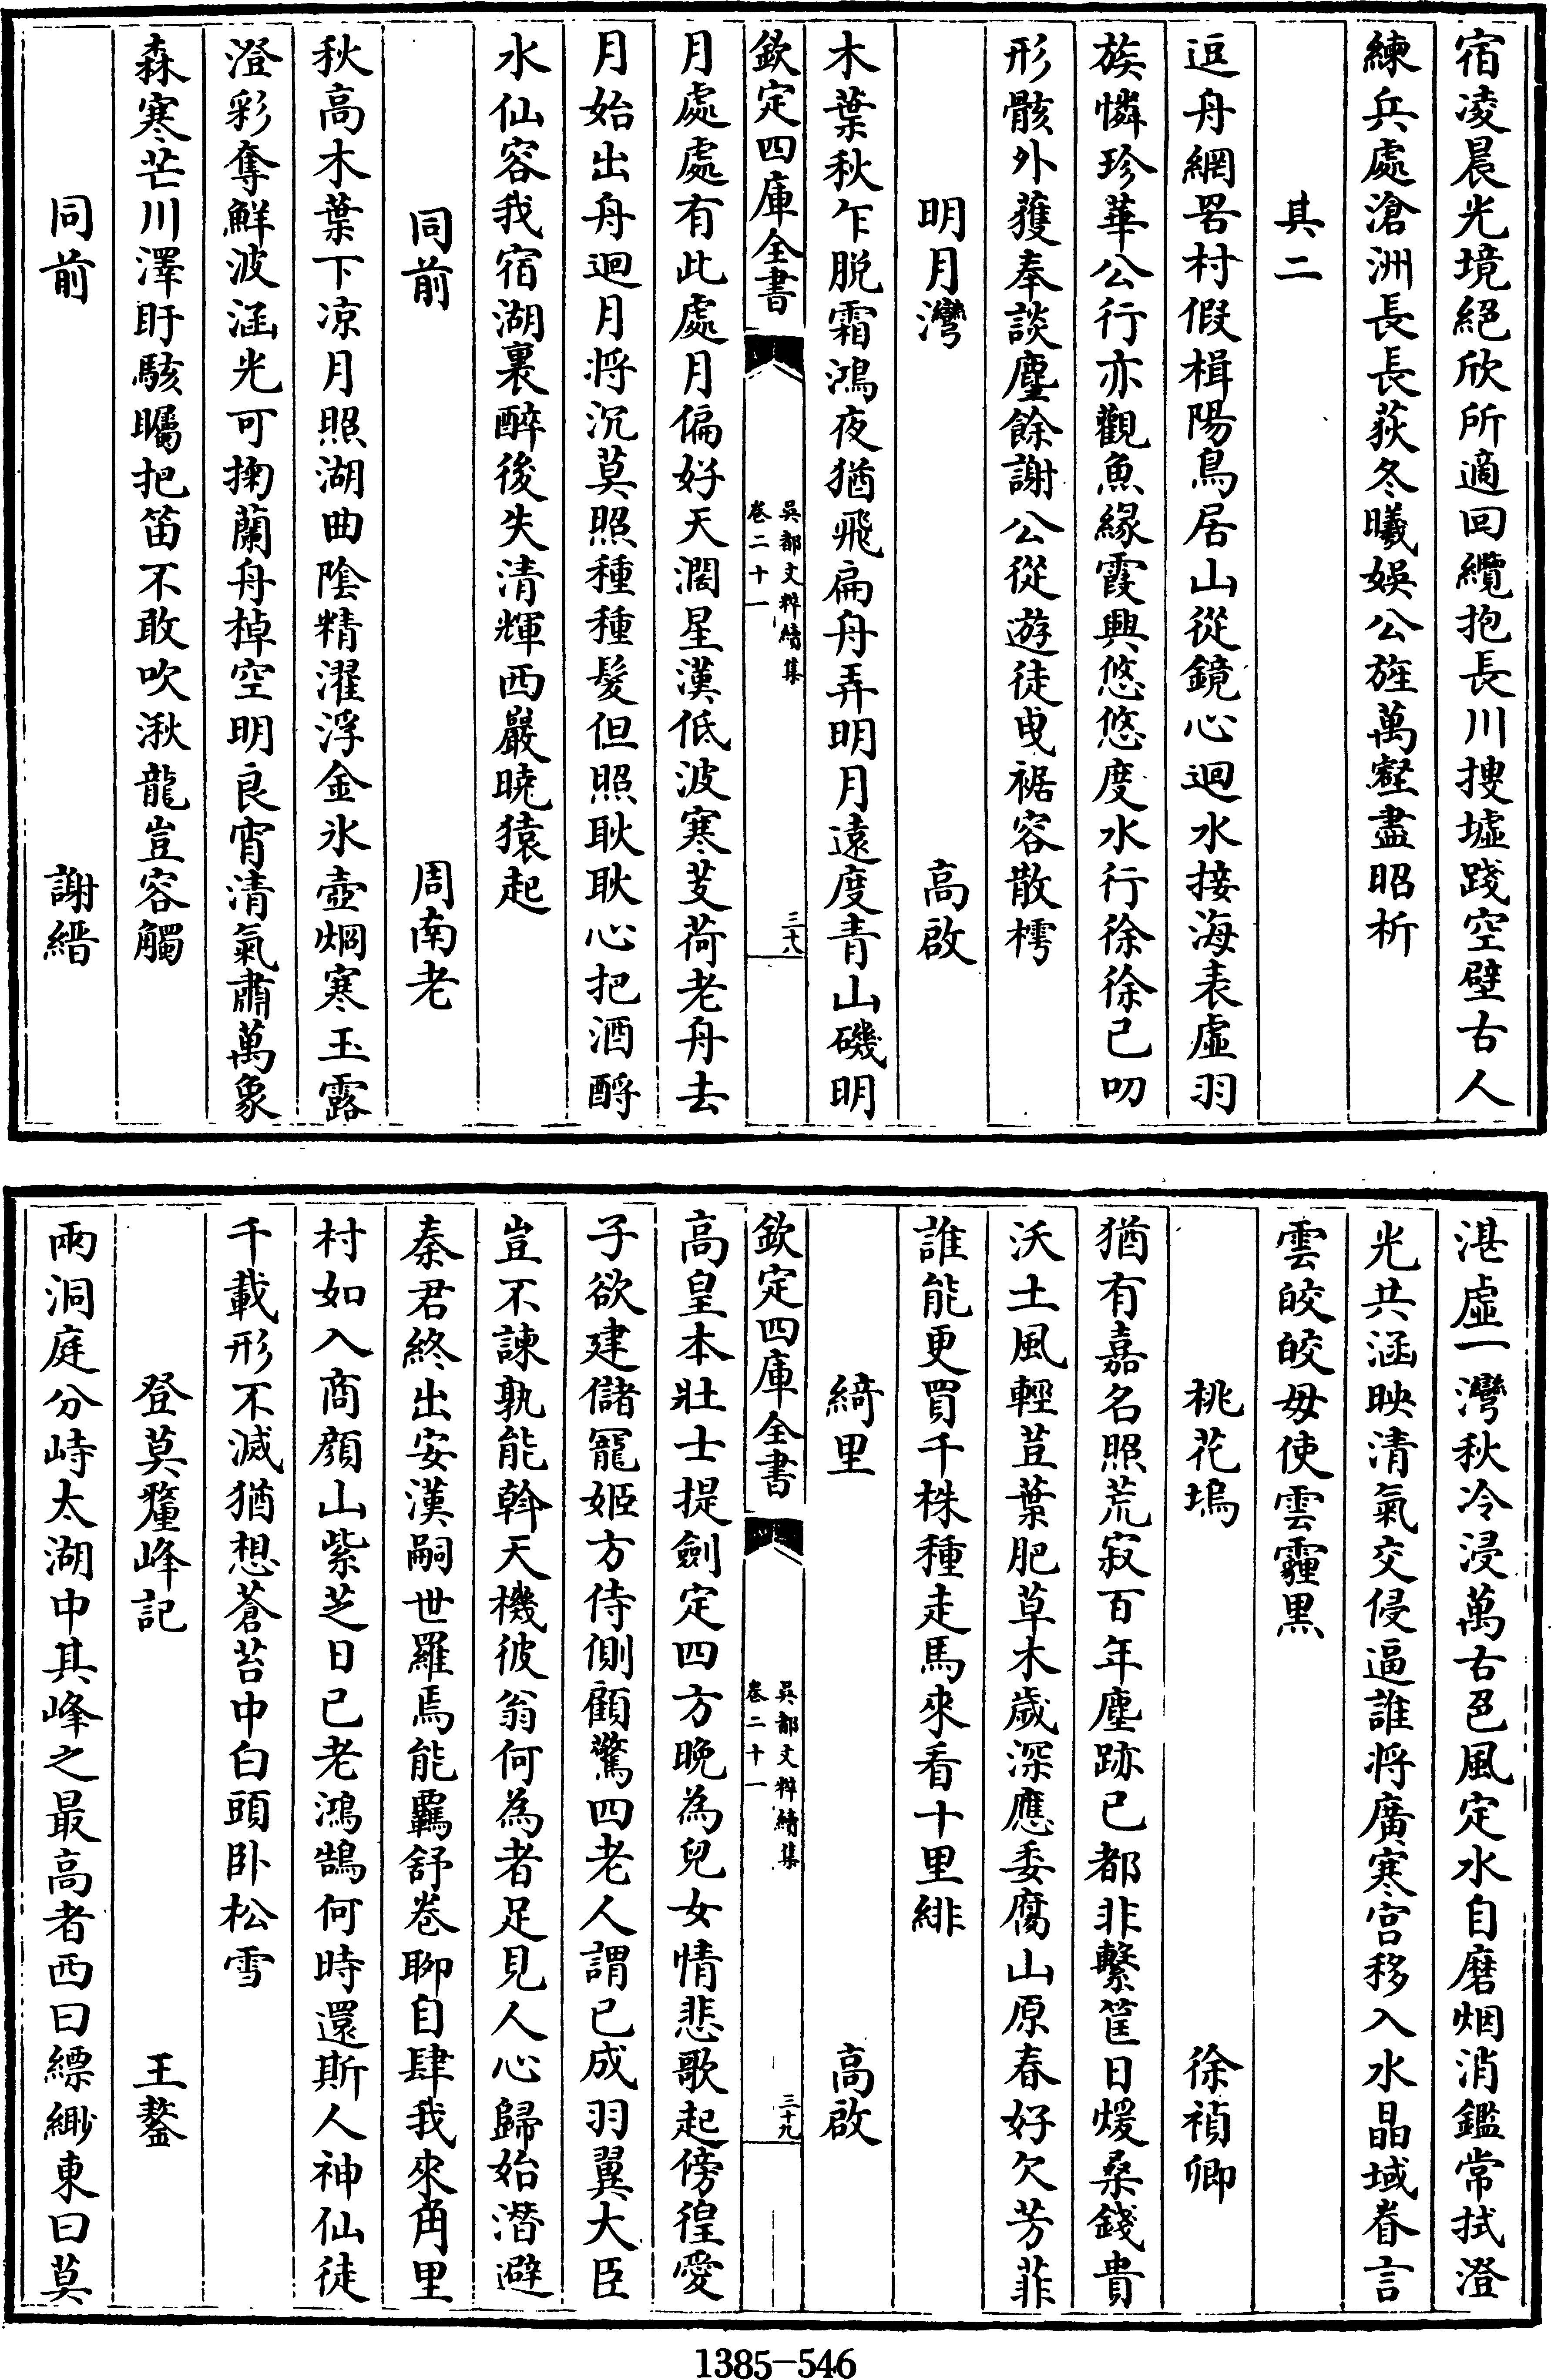 宿凌晨光境絕欣所適回纜抱長川捜墟踐空壁古人
練兵處滄洲長長荻冬曦娛公旌萬壑盡昭析
其二
逗舟網罟村假楫陽鳥居山從鏡心迴水接海表虛羽
族憐珍華公行亦觀魚緣霞興悠悠度水行徐徐已叨
形骸外獲奉談麈餘謝公從遊徒曵裾容散樗
明月灣 高啟
木葉秋乍脱霜鴻夜猶飛扁舟弄明月遠度青山磯明
欽定四庫全書 吳都文粹續集 卷二十一 三十八
月處處有此處月偏好天濶星漢低波寒芰荷老舟去
月始出舟迴月將沉莫照種種髪但照耿耿心把酒酹
水仙容我宿湖裏醉後失清輝西巖曉猿起
同前 周南老
秋高木葉下凉月照湖曲陰精濯浮金氷壺烟寒玉露
澄彩奪鮮波涵光可掬蘭舟棹空明良宵清氣肅萬象
森寒芒川澤盱駭矚把笛不敢吹湫龍豈容觸
同前 謝縉
湛虛一灣秋冷浸萬古色風定水自磨烟消鑑常拭澄
光共涵映清氣交侵逼誰將廣寒宫移入水晶域眷言
雲皎皎毋使雲霾黒
桃花塢 徐禎卿
猶有嘉名照荒寂百年塵跡已都非繫筐日煖桑錢貴
沃土風輕荳葉肥草木歲深應委腐山原春好欠芳菲
誰能更買千株種走馬來看十里緋
綺里 高啟
欽定四庫全書 吳都文粹續集 卷二十一 三十九
高皇本壯士提劍定四方晚為兒女情悲歌起傍徨愛
子欲建儲寵姬方侍側顧驚四老人謂已成羽翼大臣
豈不諫孰能斡天機彼翁何為者足見人心歸始潛避
秦君終出安漢嗣世羅焉能羈舒卷聊自肆我來角里
村如入商顔山紫芝日已老鴻鵠何時還斯人神仙徒
千載形不滅猶想蒼苔中白頭卧松雪
登莫釐峰記 王鏊
兩洞庭分峙太湖中其峰之最高者西曰縹緲東曰莫
1385-546